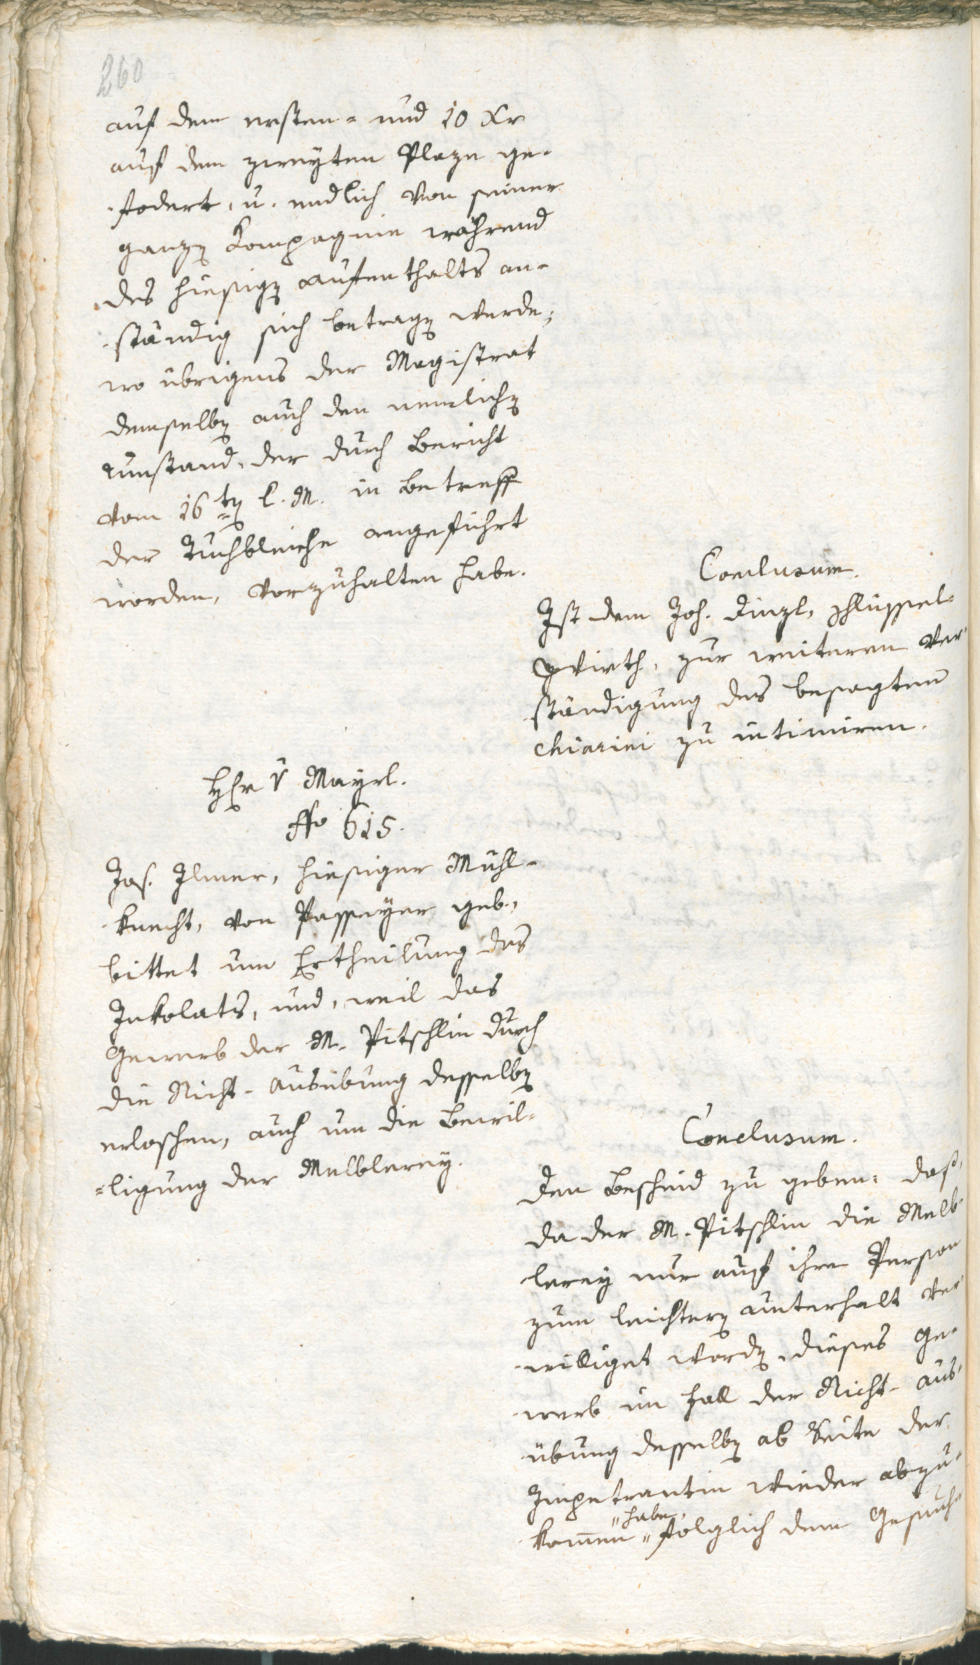 260
auf dem ersten- und 10 Xr
auf dem zweyten Plaze ge-
fodert, u. endlich von seiner
ganzen Kompagnie während
des hiesigen Aufenthalts an-
ständig sich betragen werde;
wo übrigens der Magistrat
demselben auch den nemlichen
Umstand, der durch Bericht
vom 16ten l. M. in Betreff
der Tuchbleiche angeführt
worden, vorzuhalten habe.
Conclusum.
Ist dem Joh. Dinzl, Schlüssel-
Wirth, zur weiteren Ver-
ständigung des besagten
Chiarini zu intimiren.
Hr v Mayrl.
No 615.
Jos. Ilmer, hiesiger Mühl-
knecht, von Passeyer geb.,
bittet um Ertheilung des
Inkolats, und, weil das
Gewerb der M. Pitschlin durch
die Nicht-Ausübung desselben
erloschen, auch um die Bewil-
ligung der Melblerey.
Conclusum.
Den Bescheid zu geben: daß,
da der M. Pitschlin die Melb-
lerey nur auf ihre Person
zum leichtern Unterhalt ver-
williget worden, dieses Ge-
werb im Fall der Nicht-Aus-
übung desselben ab Seite der
Impetrantin wieder abzu-
kommen "habe," folglich dem Gesuche